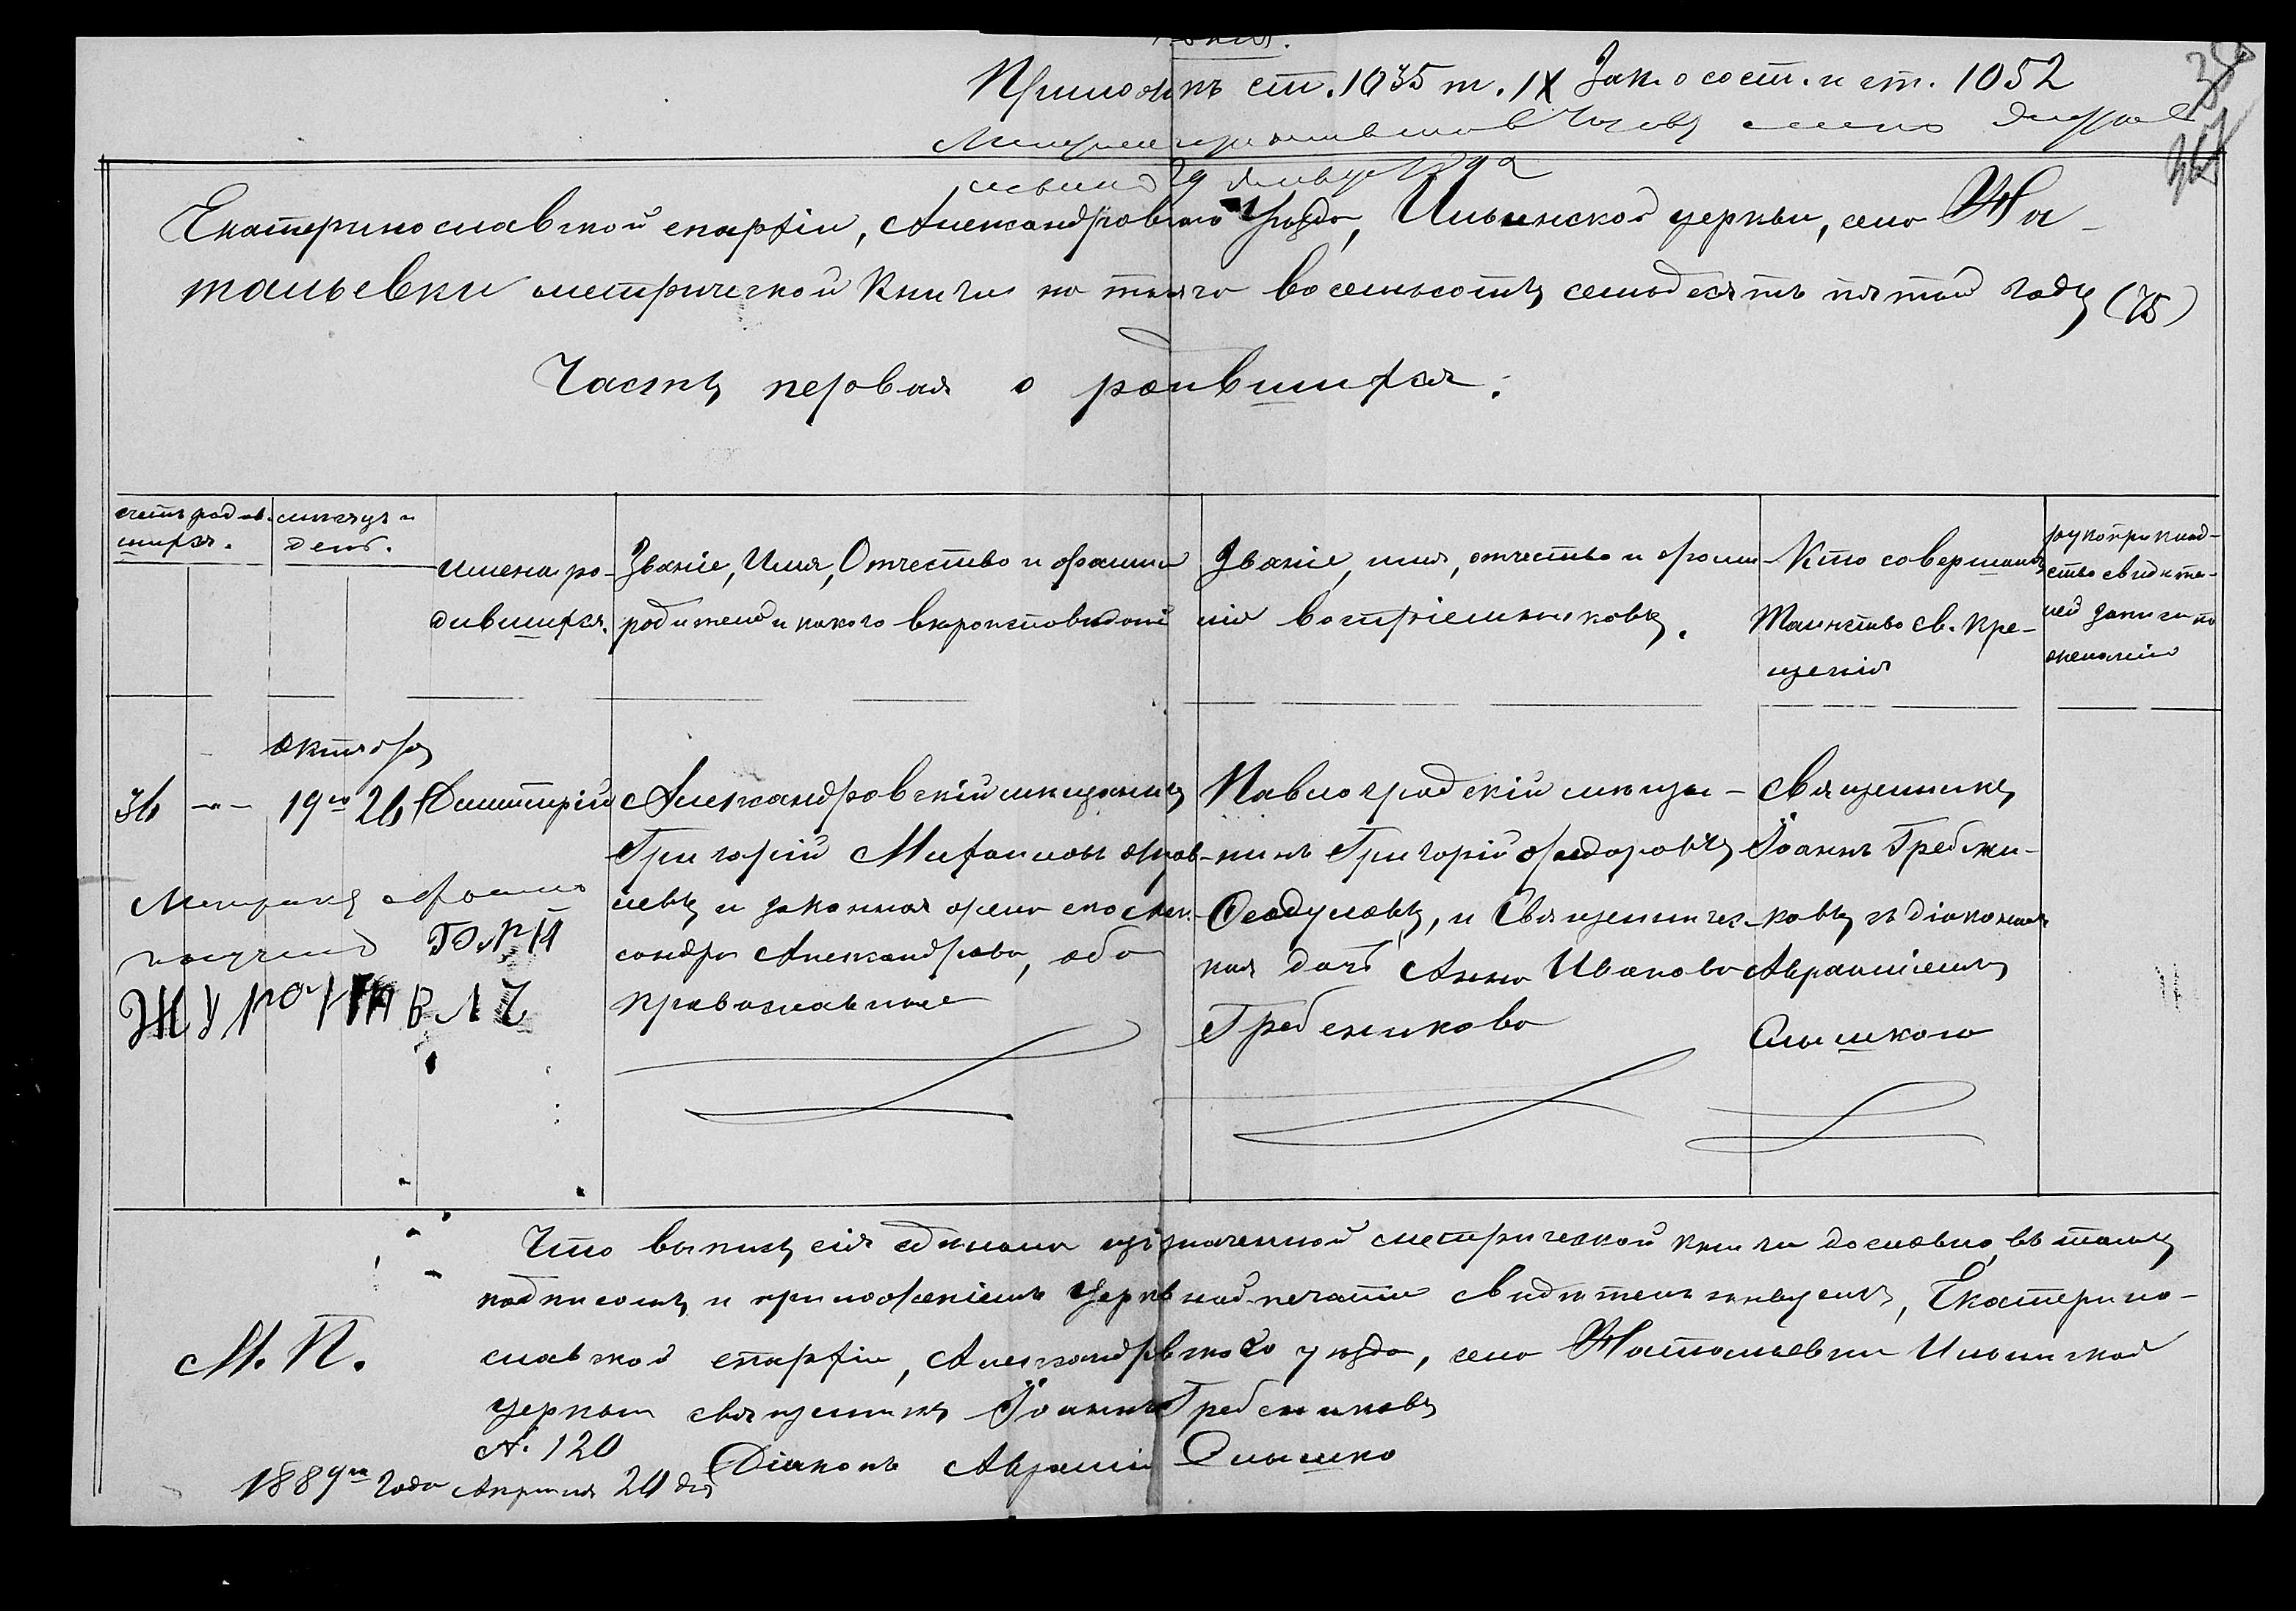 Копія.
Прилож. къ ст. 1035 т. IX Зак. о сост. и ст. 1052
29 Января 1892
Екатеринославской епархіи, Александровскаго уѣзда, Ильинской церкви, села На-
тальевки метрической книги на тысяча восемьсотъ семьдесятъ пятый годъ (75)
Часть первая о родившихся.
счетъ родив-
шихся.
мѣсяцъ и
день.
имена ро-
дившихся.
Званіе, Имя, Отчество и фамилія
родителей и какого вѣроисповѣданія
Званіе, имя, отчество и фами-
лія воспріемниковъ.
Кто совершалъ
Таинство св. кре-
щенія
рукоприклад-
ство свидѣте-
лей записи по
желанію
Октябрь
36 -"- 19го 26 Димитрій
Александровскій мѣщанинъ
Григорій Михаиловъ Журав-
левъ и законная жена его Алек-
сандра Александрова, оба
православные
Павлоградскій мѣща-
нинъ Григорій Федоровъ
Феодуловъ, и Священничес-
кая дочь Анна Иванова
Гребенникова
Священникъ
Іоаннъ Гребенни-
ковъ съ діакономъ
Авраміемъ
Слышкою
Метрику обратно
получилъ
Что выпись сія съ подлинной метрической книги дословно, въ томъ
подписомъ и приложеніемъ церковной печати свидѣтельствуемъ, Екатерино-
славской епархіи, Александровскаго уѣзда, села Натальевки Ильинской
церкви священникъ Іоаннъ Гребенниковъ
М. П.
№ 120
Діаконъ Аврамій Слышко
1889го года Апрѣля 20 дня